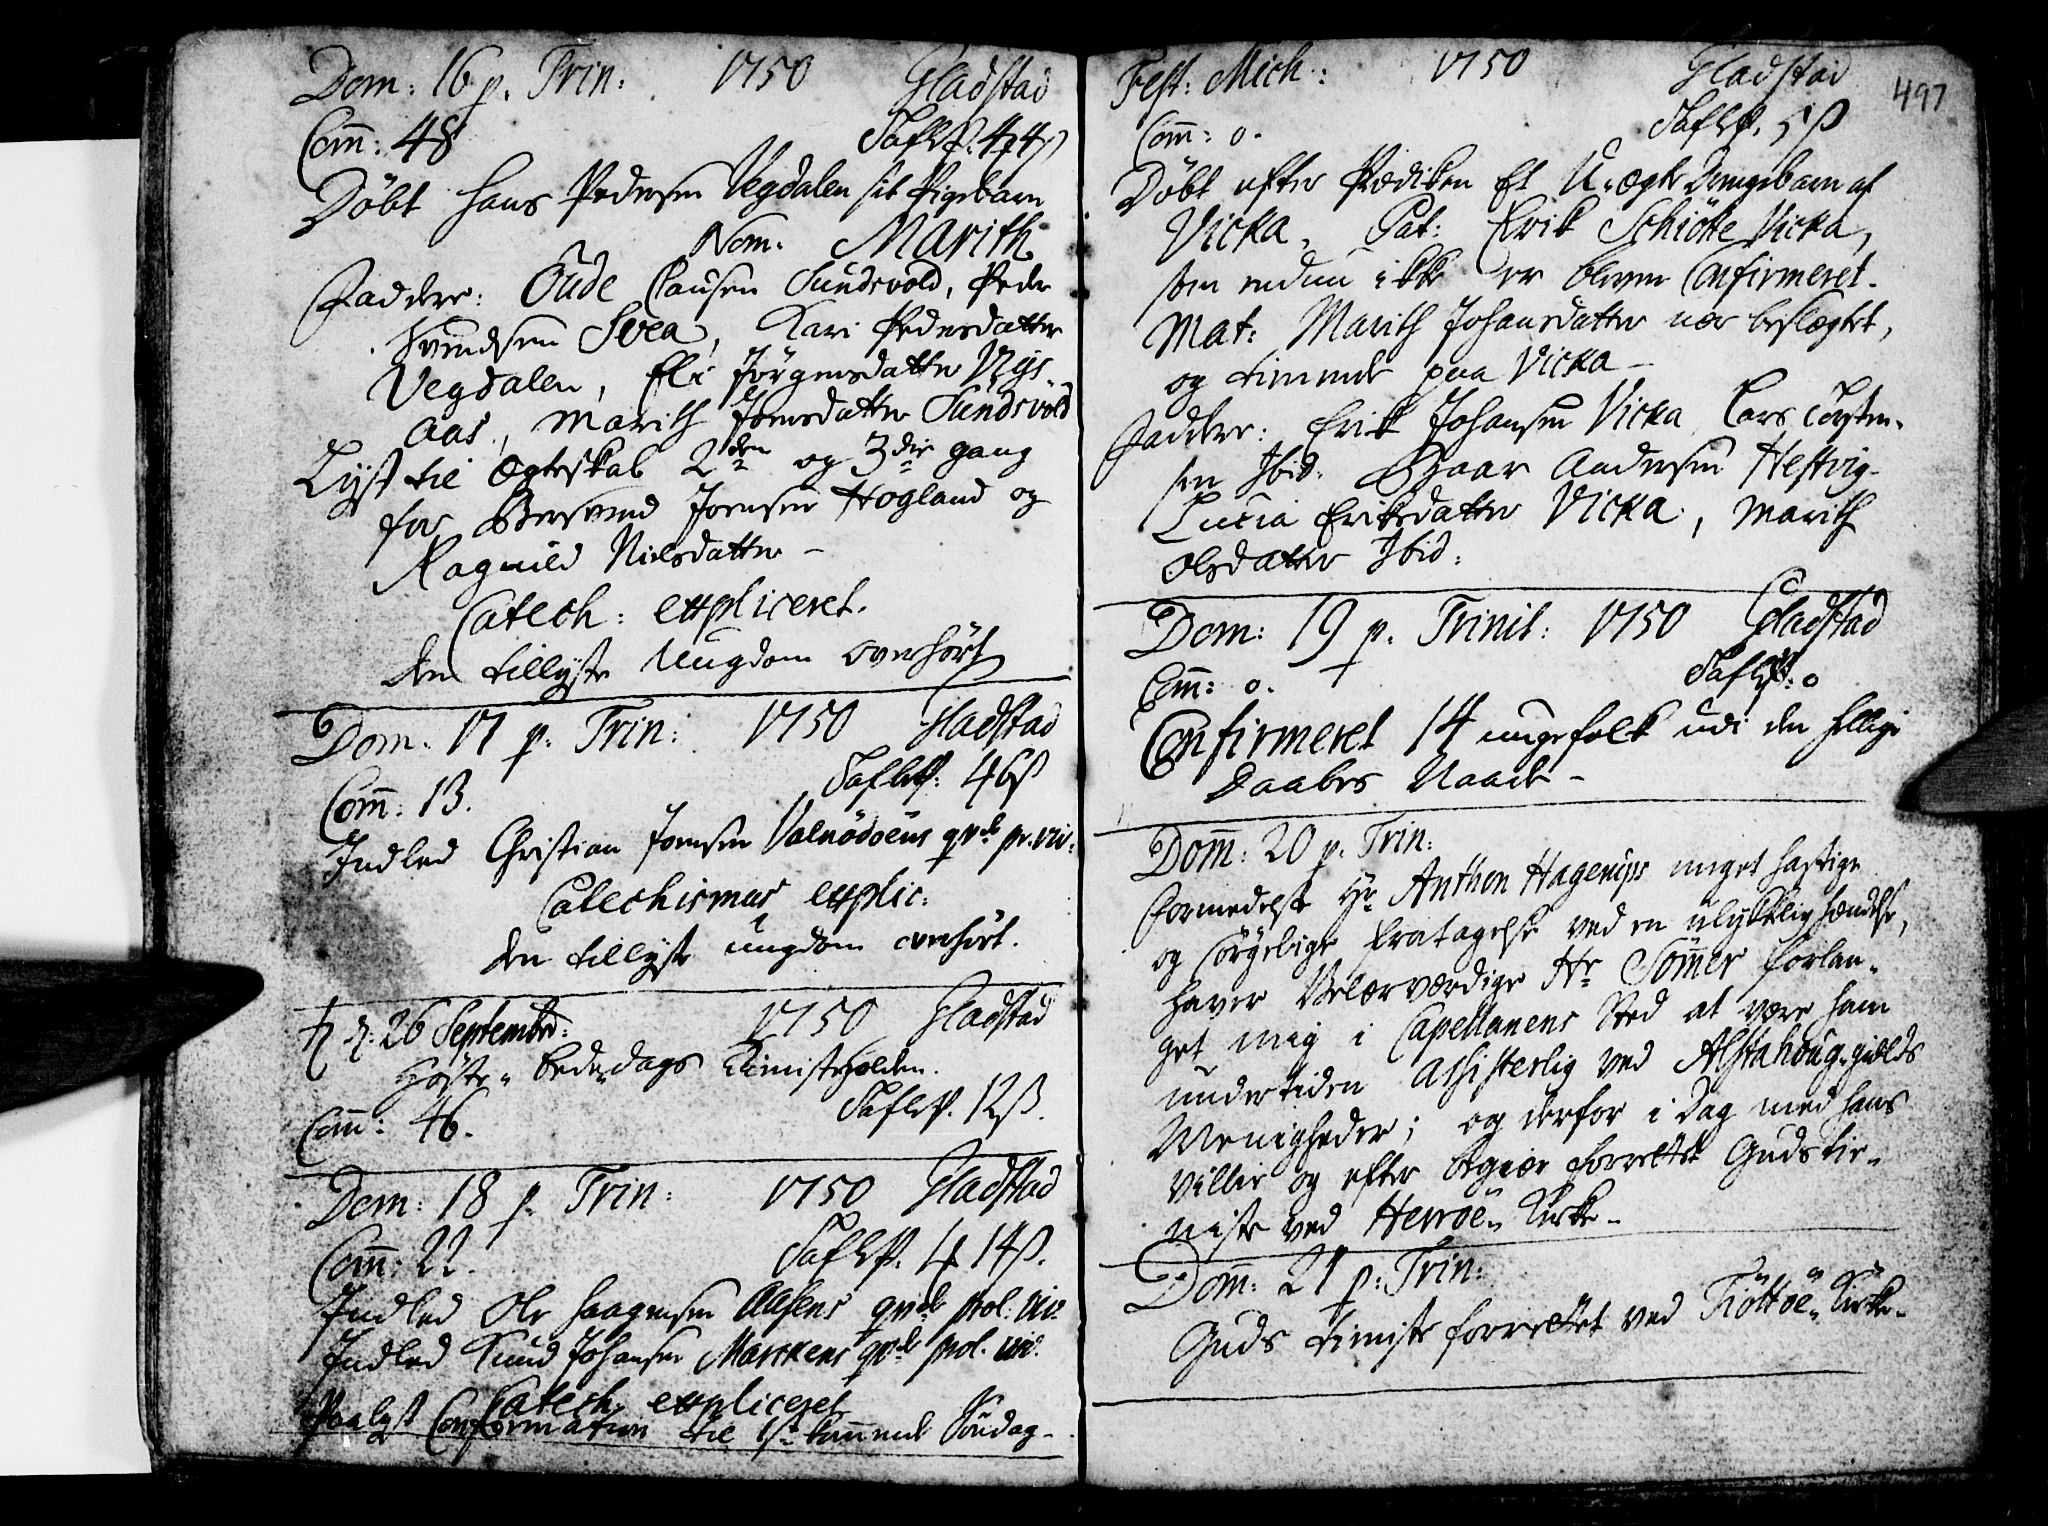 Dom: 16 p. Trin: 1750 Gladstad
Com̄: 48 Taflp.
Döbt Hans Pedersen Vegdalen sit Pigebarn
Nom. Marith
Faddere: Oude Clausen Sundsvold, Peder
Svendsen Svea, Kari Pedersdatter
Vegdalen, Eli Jörgensdatter Nÿs-
Aas, Marith Joensdatter Sundsvold
Lyst til Ægteskab 2den og 3die gang
for Bersvend Joensen Hogland og
Ragnild Nielsdatter –
Catech: expliceret.
den tillyste Ungdom overhört
Dom. 17 p. Trin: 1750 Gladstad
Com̄: 13. Taflp. 46 ß
Indled Christian Joensen qvde
Catechismus explic:
den tillyste ungdom overhört.
d: 26 Septembr: 1750 Gladstad
Höste-bededags Tieniste holden.
Com̄: 46. Taflp. 12 ß.
Dom: 18 p. Trin: 1750 Gladstad
Com̄: 22. Taflp. 14 ß.
Indled Ole Haagensen Aasens qvde prol: viv.
Indled Knud Johansen Marckens qvde prol. viv.
Catech. expliceret
Paalyst Confirmation til 1st kom̄ende Söndag –
497
Fest: Mich: 1750 Gladstad
Com̄: 0. Taflp. 5 ß
Döbt efter Prædiken Et U-ægte Drengebarn af
Vicka. Pat: Erik Schiötte Vicka,
som endnu ikke er bleven Confirmeret.
Mat: Marith Johansdatter nær beslægtet,
og tienende paa Vicka –
Faddere: Erik Johansen Vicka, Lars Torsten-
sen Ibid. Andersen Hestvig
Lucia Eriksdatter Vicka, Marith
Olsdatter Ibid:
Dom: 19 p. Trinit: 1750 Gladstad
Com̄: 0. Taflp: 0
Confirmeret 14 unge folk udi den hellige
Daabes Naade –
Dom̄: 20 p. Trin:
Formedelst Hr Anthon Hagerups meget hastige
og sörgelige Fratagelse ved en ulykkelig hændelse,
haver Velærværdige Hr Söm̄er forlan-
get mig i Capellanens Sted at være ham
undertiden assisterlig ved Alstahoug-gields
Menigheder; og derfor i Dag med hans
villie og efter begiær forrettet Guds tie-
niste ved Herröe-Kirke –
Dom̄: 21 p: Trin:
Guds tieniste forrettet ved Tiöttöe-Kirke –